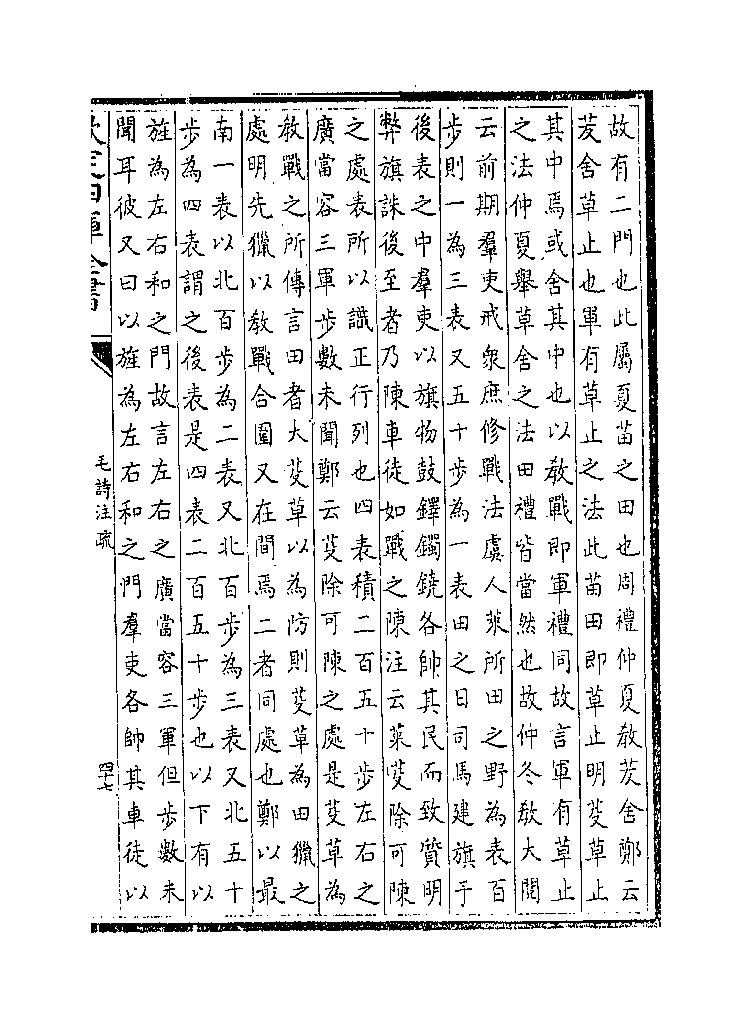 故有二門也此屬夏苗之田也周禮仲夏教茇舍鄭云
茇舍草止也軍有草止之法此苗田即草止明芟草止
其中焉或舍其中也以教戰即軍禮同故言軍有草止
之法仲夏舉草舍之法田禮皆當然也故仲冬教大閱
云前期羣吏戒衆庶修戰法虞人萊所田之野為表百
步則一為三表又五十步為一表田之日司馬建旗于
後表之中羣吏以旗物鼓鐸鐲鐃各帥其民而致質明
弊旗誅後至者乃陳車徒如戰之陳注云萊芟除可陳
之處表所以識正行列也四表積二百五十步左右之
廣當容三軍步數未聞鄭云芟除可陳之處是芟草為
教戰之所傳言田者大芟草以為防則芟草為田獵之
處明先獵以教戰合圍又在間焉二者同處也鄭以最
南一表以北百步為二表又北百步為三表又北五十
步為四表謂之後表是四表二百五十步也以下有以
旌為左右和之門故言左右之廣當容三軍但步數未
聞耳彼又曰以旌為左右和之門羣吏各帥其車徒以
欽定四庫全書
毛詩注疏
四十七